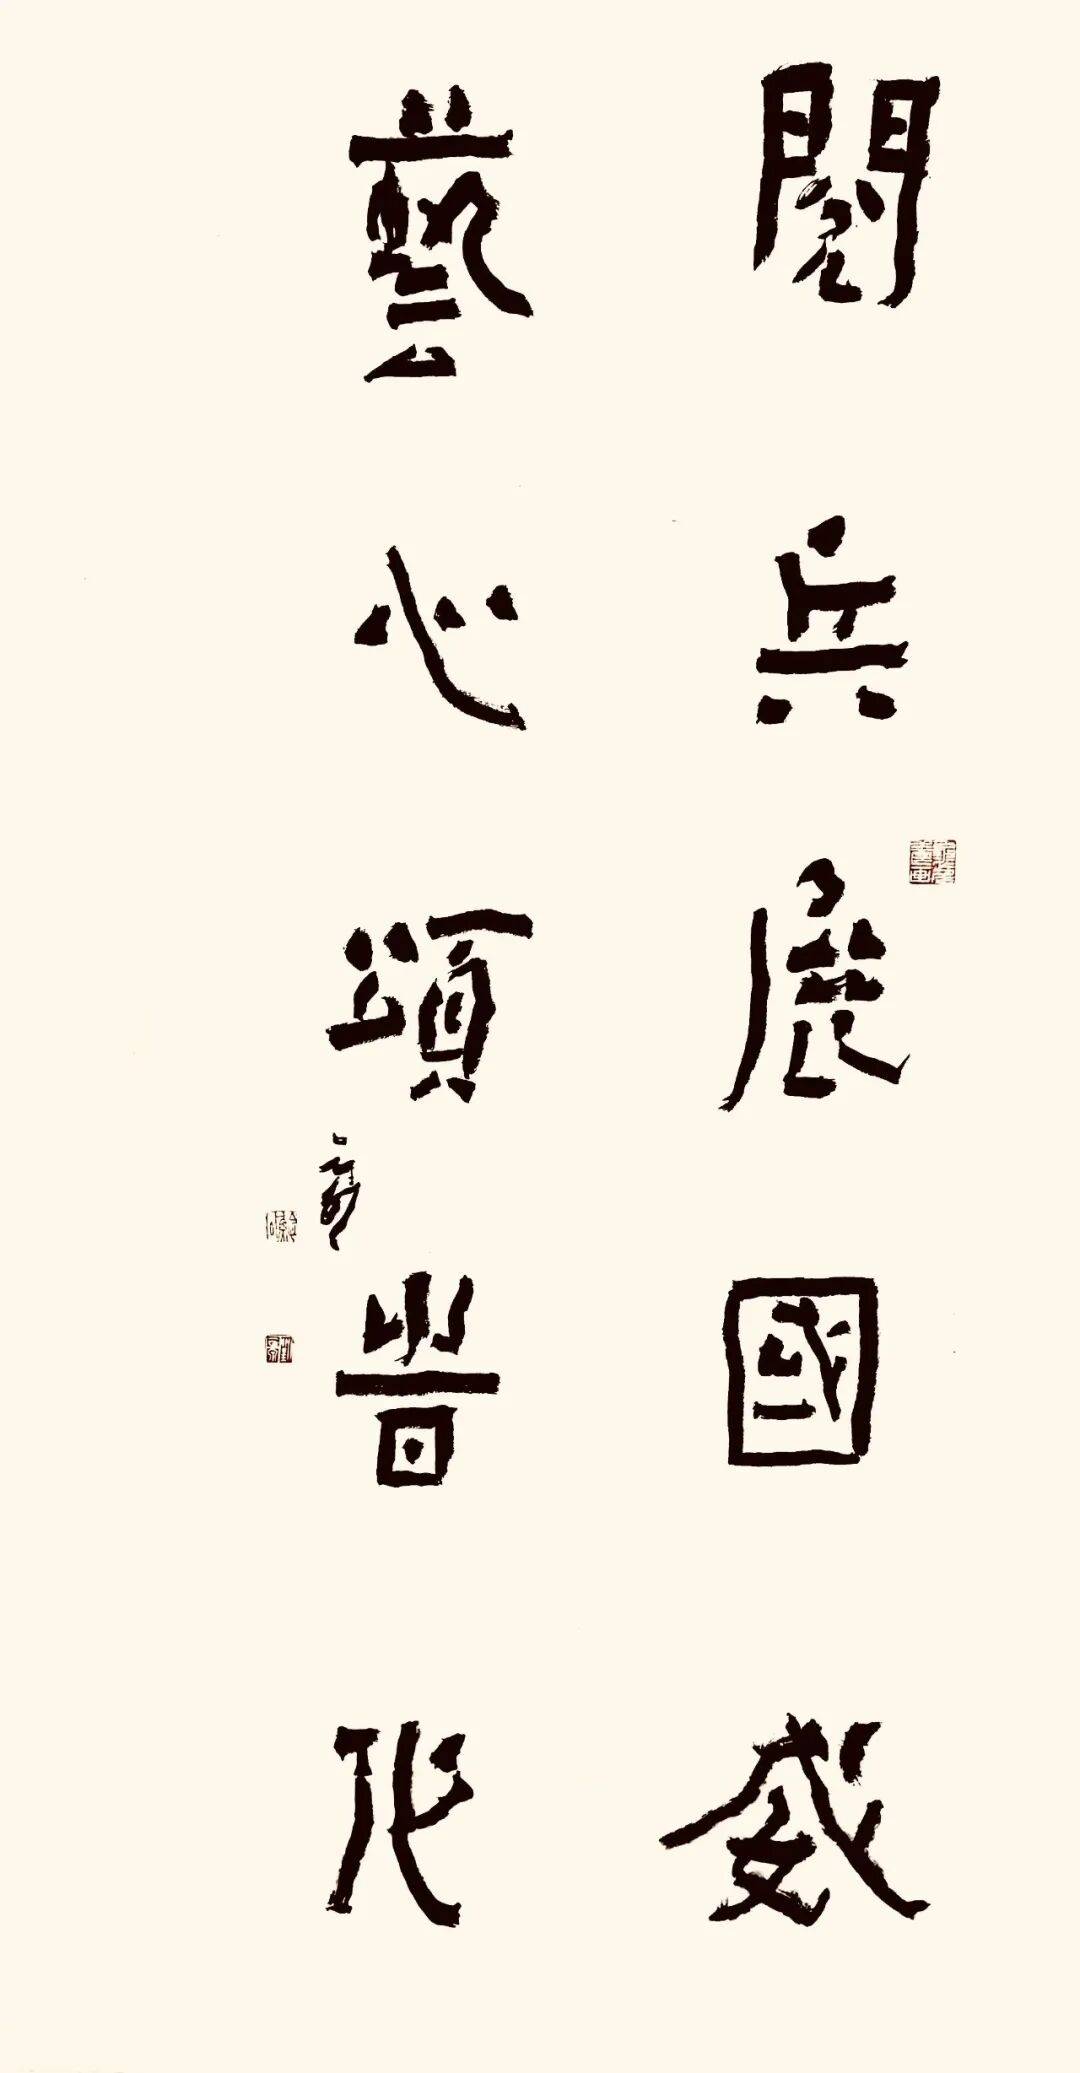 閱兵展國威
藝心頌旹代